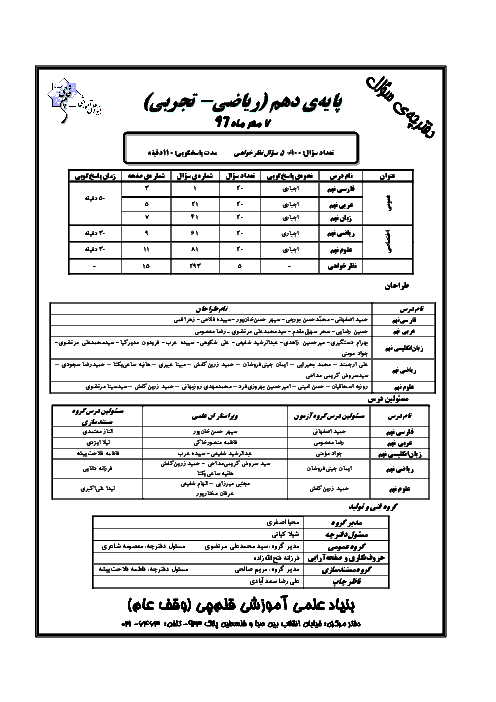 دفترچه‌ی سؤال
پایه‌ی دهم (ریاضی - تجربی)
۷ مهر ماه 97
تعداد سؤال: ۱۰۰ + ۵ سؤال نظرخواهی مدت پاسخگویی: ۱۱۰ دقیقه
عنوان نام درس نحوه‌ی پاسخ‌گویی تعداد سؤال شماره‌ی سؤال شماره‌ی صفحه زمان پاسخ‌گویی
عمومی فارسی نهم اجباری ۲۰ ۱ ۳ ۵۰ دقیقه
عربی نهم اجباری ۲۰ ۲۱ ۵
زبان نهم اجباری ۲۰ ۴۱ ۷
اختصاصی ریاضی نهم اجباری ۲۰ ۶۱ ۹ ۳۰ دقیقه
علوم نهم اجباری ۲۰ ۸۱ ۱۱ ۳۰ دقیقه
نظرخواهی - ۵ ۲۹۳ ۱۵ -
طراحان
نام درس نام طراحان
فارسی نهم حمید اصفهانی - سپهر حسن‌خان‌پور - سپیده فلاحی
عربی نهم سیدمحمدعلی مرتضوی - رضا معصومی
زبان انگلیسی نهم عبدالرشید شفیعی - علی شکوهی - سپیده عرب - سیدمحمدعلی مرتضوی -
جواد مؤمنی
ریاضی نهم علی ارجمند - ایمان چینی‌فروشان - حمید زرین‌کفش
علوم نهم روزبه اسحاقیان - حسن امینی - حمید زرین‌کفش
مسئولین درس
نام درس مسئولین درس گروه آزمون ویراستاران علمی مسئولین درس گروه مستندسازی
فارسی نهم حمید اصفهانی سپهر حسن‌خان‌پور الناز معتمدی
عربی نهم رضا معصومی فاطمه منصورخاکی لیلا ایزدی
زبان انگلیسی نهم جواد مؤمنی عبدالرشید شفیعی - سپیده عرب فاطمه فلاحت‌پیشه
ریاضی نهم ایمان چینی‌فروشان حمید زرین‌کفش فرزانه دانایی
علوم نهم حمید زرین‌کفش لیدا علی‌اکبری
گروه فنی و تولید
مدیر گروه محیا اصغری
مسئول دفترچه شیلا کیانی
گروه عمومی مدیر گروه: سید محمدعلی مرتضوی مسئول دفترچه: معصومه شاعری
حروف‌نگاری و صفحه‌آرایی فرزانه فتح‌اله‌زاده
گروه مستندسازی مدیر گروه: مریم صالحی مسئول دفترچه: فاطمه فلاحت‌پیشه
ناظر چاپ علی‌رضا سعدآبادی
بنیاد علمی آموزشی قلم‌چی (وقف عام)
دفتر مرکزی: خیابان انقلاب بین صبا و فلسطین پلاک ۹۲۳ - تلفن: ۶۴۶۳-۰۲۱